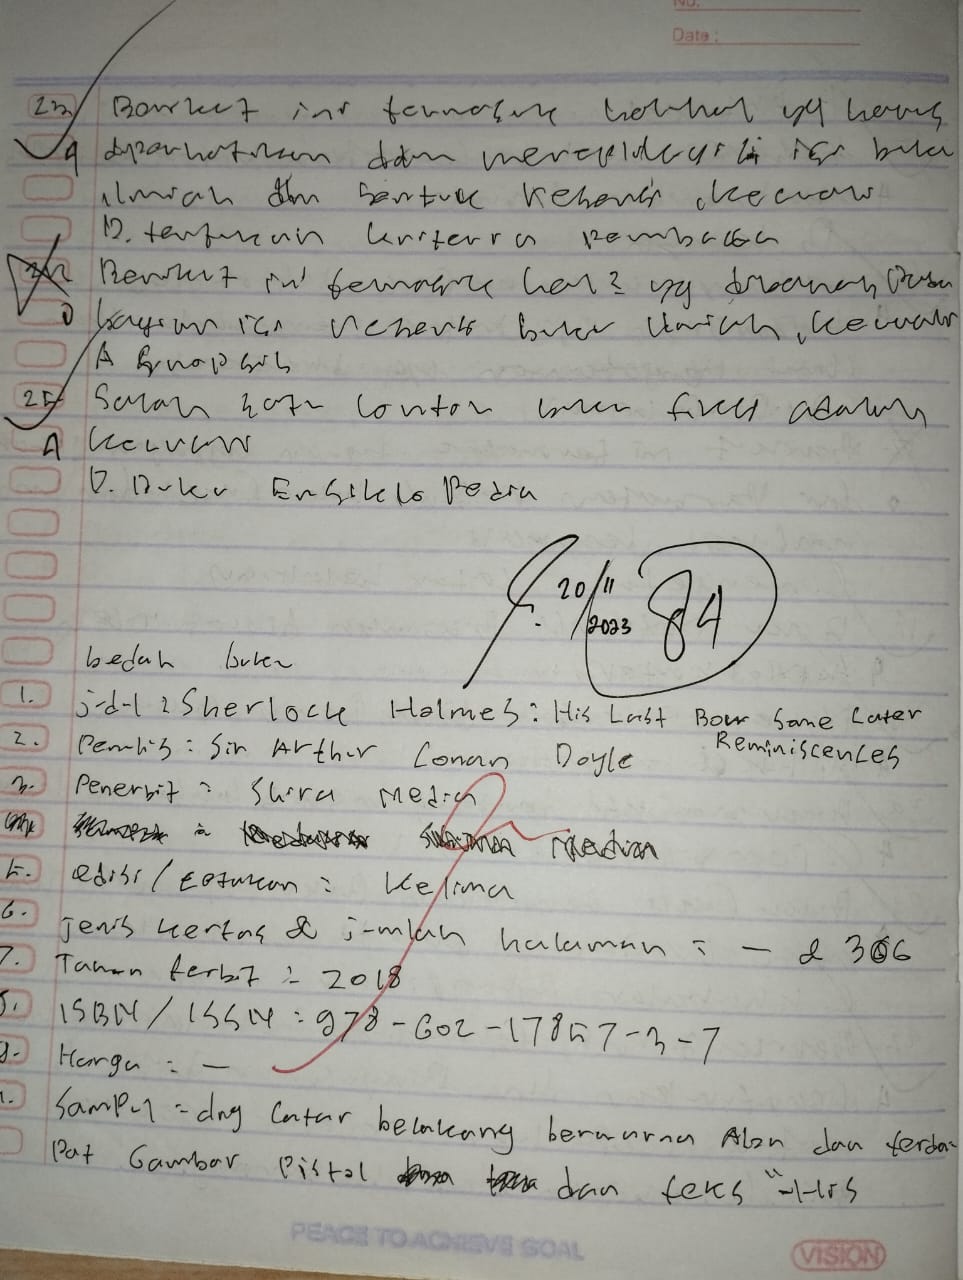 No.
Date :
23 Berikut ini termasuk hal-hal yg harus
A diperhatikan dlm isi buku
ilmiah dlm bentuk resensi, kecuali
D. tentukan kriteria pembaca
24 Berikut ini termasuk hal2 yg
D isi resensi buku ilmiah, kecuali
A Sinopsis
25 Salah satu contoh buku fiksi adalah
A kecuali
D. Buku Ensiklopedia
20/11
2023 84
bedah buku
1. judul : Sherlock Holmes : His Last Bow Some Later
Reminiscences
2. Penulis : Sir Arther Conan Doyle
3. Penerbit : Shira Media
5. edisi / cetakan : kelima
6. jenis kertas & jumlah halaman : - & 306
7. Tahun terbit : 2018
ISBN / ISSN : 978-602-17857-3-7
Harga : -
Sampul : dng latar belakang berwarna Abu dan terda-
pat Gambar Pistol dan teks "His
PEACE TO ACHIEVE GOAL
VISION